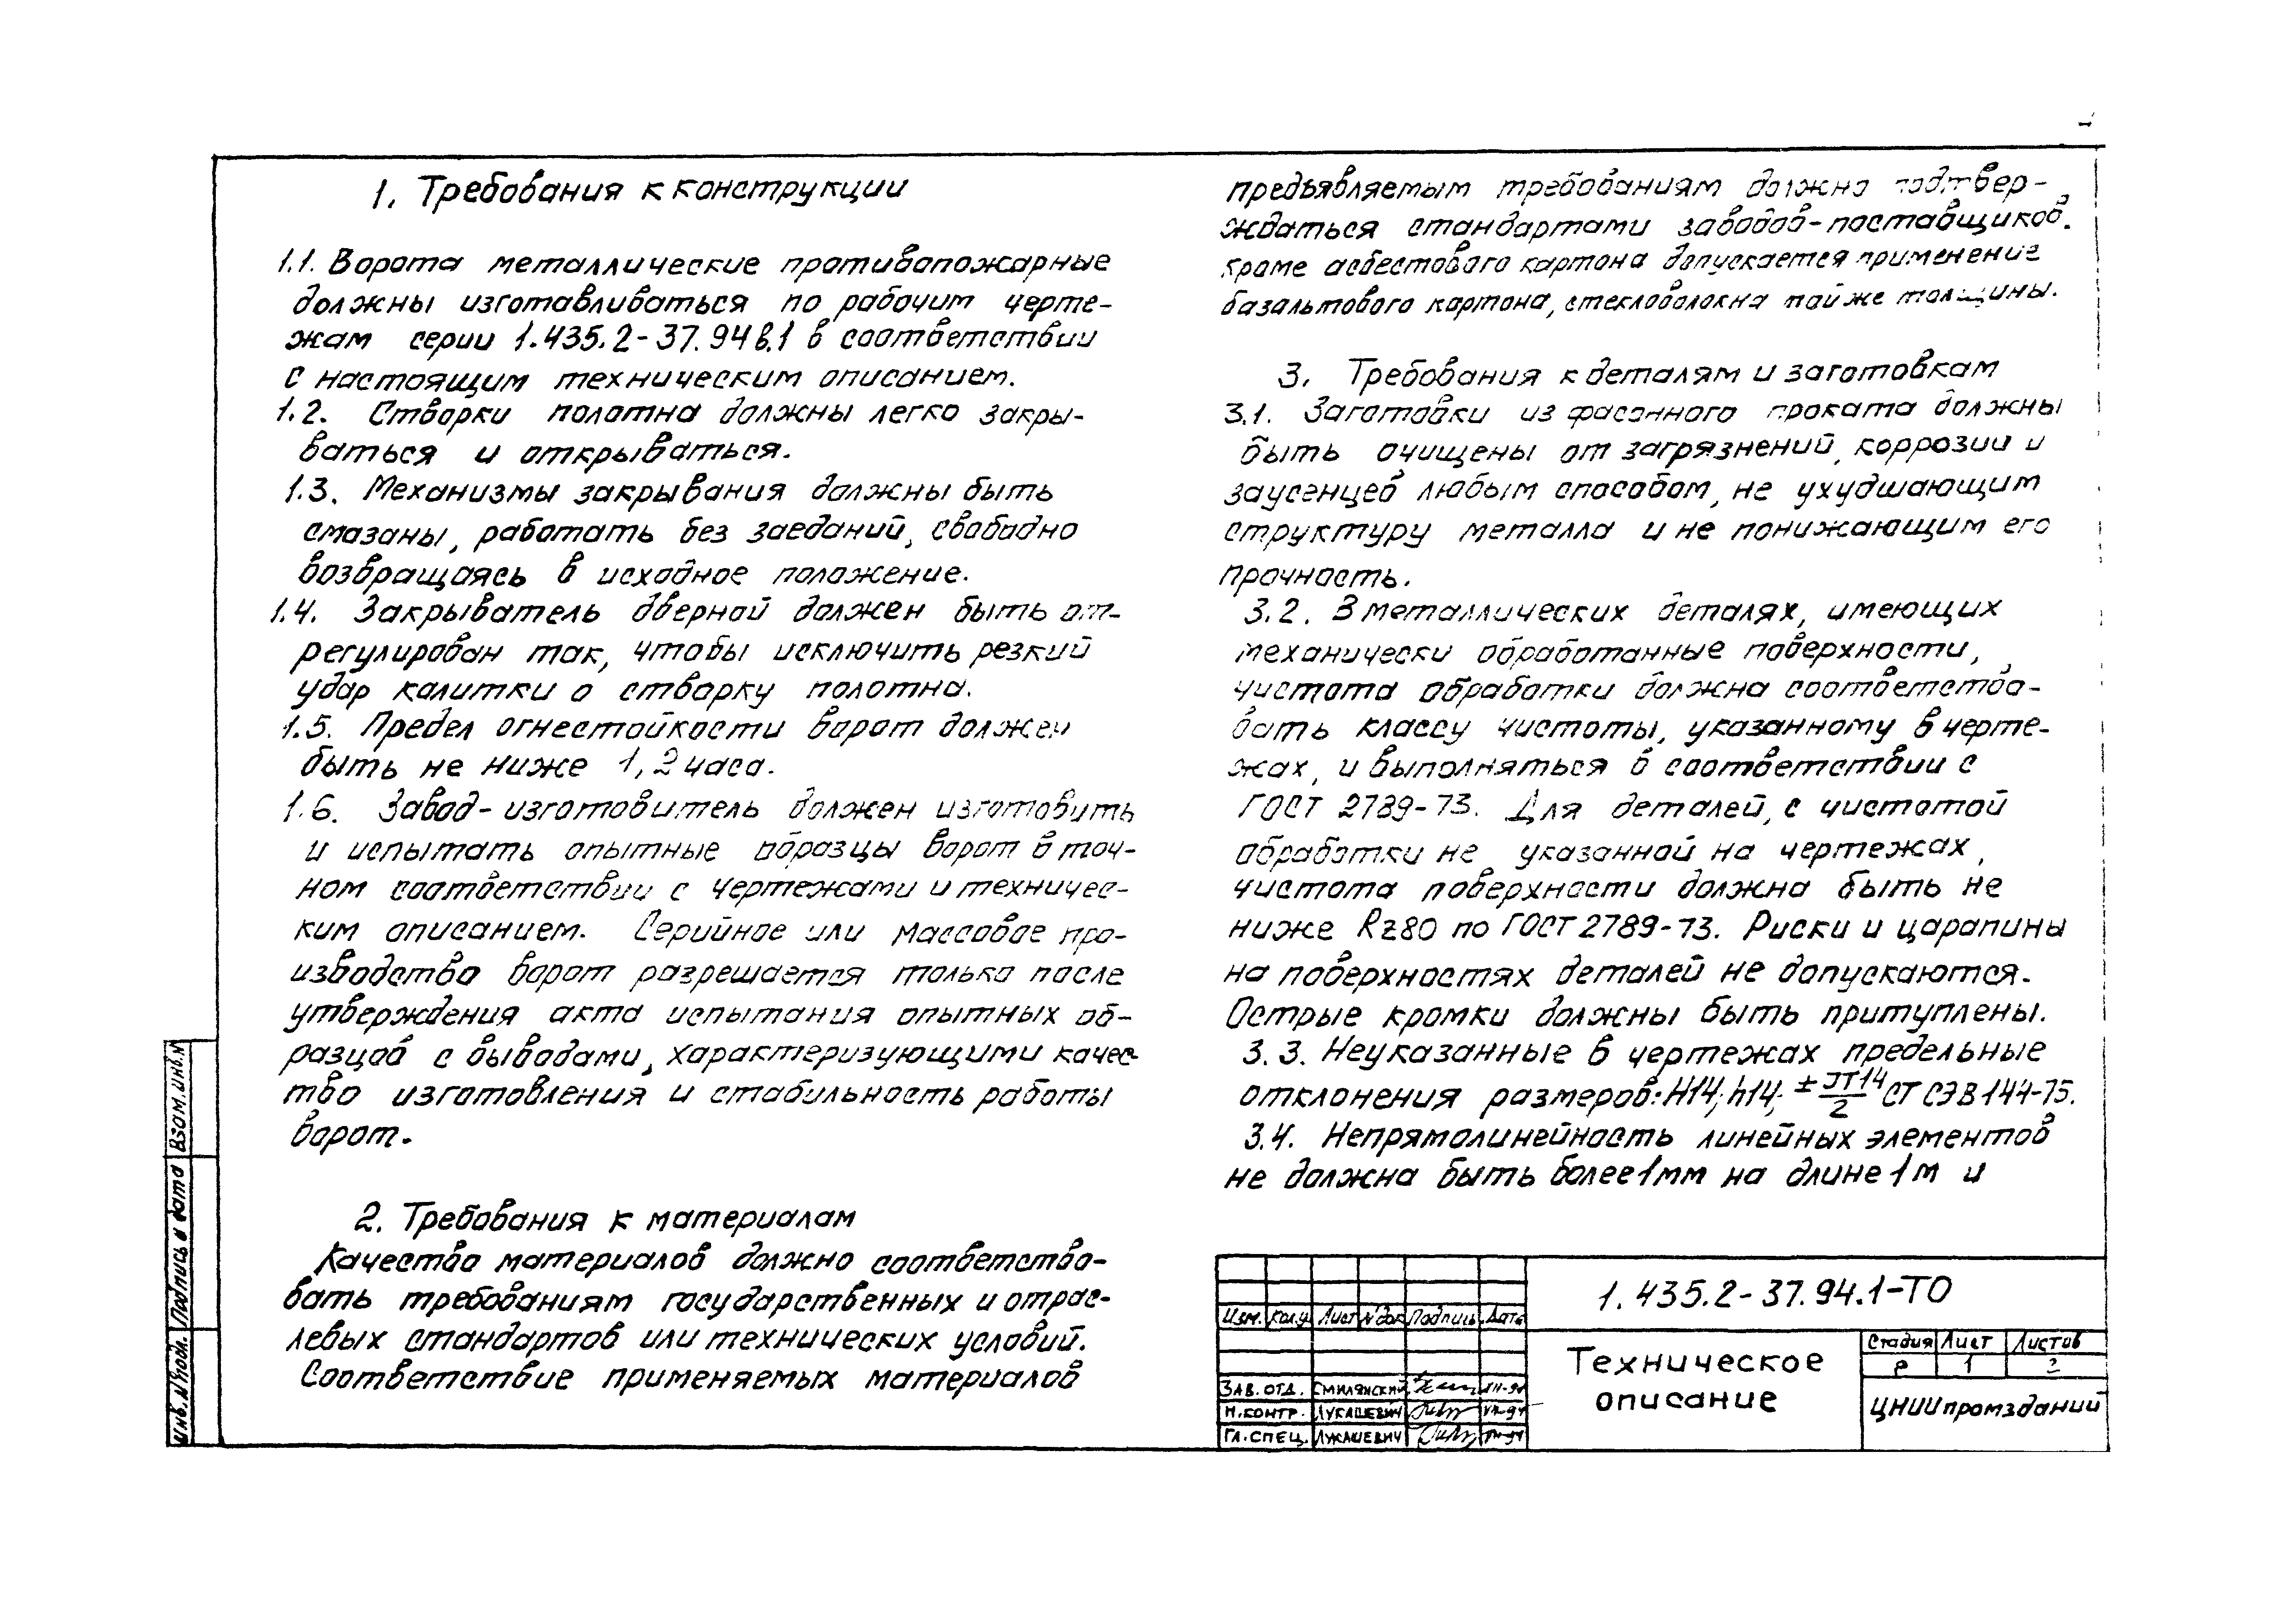 1. Требования к конструкции
1.1. Ворота металлические противопожарные
должны изготавливаться по рабочим черте-
жам серии 1.435.2-37.94 в.1 в соответствии
с настоящим техническим описанием.
1.2. Створки полотна должны легко закры-
ваться и открываться.
1.3. Механизмы закрывания должны быть
смазаны, работать без заеданий, свободно
возвращаясь в исходное положение.
1.4. Закрыватель дверной должен быть от-
регулирован так, чтобы исключить резкий
удар калитки о створку полотна.
1.5. Предел огнестойкости ворот должен
быть не ниже 1,2 часа.
1.6. Завод-изготовитель должен изготовить
и испытать опытные образцы ворот в точ-
ном соответствии с чертежами и техничес-
ким описанием. Серийное или массовое про-
изводство ворот разрешается только после
утверждения акта испытания опытных об-
разцов с выводами, характеризующими качес-
тво изготовления и стабильность работы
ворот.
2. Требования к материалам
Качество материалов должно соответство-
вать требованиям государственных и отрас-
левых стандартов или технических условий.
Соответствие применяемых материалов
предъявляемым требованиям должно подтвер-
ждаться стандартами заводов-поставщиков.
Кроме асбестового картона допускается применение
базальтового картона, стекловолокна той же толщины.
3. Требования к деталям и заготовкам
3.1. Заготовки из фасонного проката должны
быть очищены от загрязнений, коррозии и
заусенцев любым способом, не ухудшающим
структуру металла и не понижающим его
прочность.
3.2. В металлических деталях, имеющих
механически обработанные поверхности,
чистота обработки должна соответство-
вать классу чистоты, указанному в черте-
жах, и выполняться в соответствии с
ГОСТ 2789-73. Для деталей, с чистотой
обработки не указанной на чертежах,
чистота поверхности должна быть не
ниже Rz80 по ГОСТ 2789-73. Риски и царапины
на поверхностях деталей не допускаются.
Острые кромки должны быть притуплены.
3.3. Неуказанные в чертежах предельные
отклонения размеров: H14; h14; ± IT14/2 СТ СЭВ 144-75.
3.4. Непрямолинейность линейных элементов
не должна быть более 1мм на длине 1 м и
1.435.2-37.94.1-ТО
Изм. Кол.уч Лист №док Подпись Дата
Техническое
описание
Стадия Лист Листов
Р 1
ЦНИИпромзданий
Зав. отд. Смилянский
Н. контр. Лукашевич
Гл. спец. Лукашевич
Взам. инв. №
Подпись и дата
Инв. № подл.